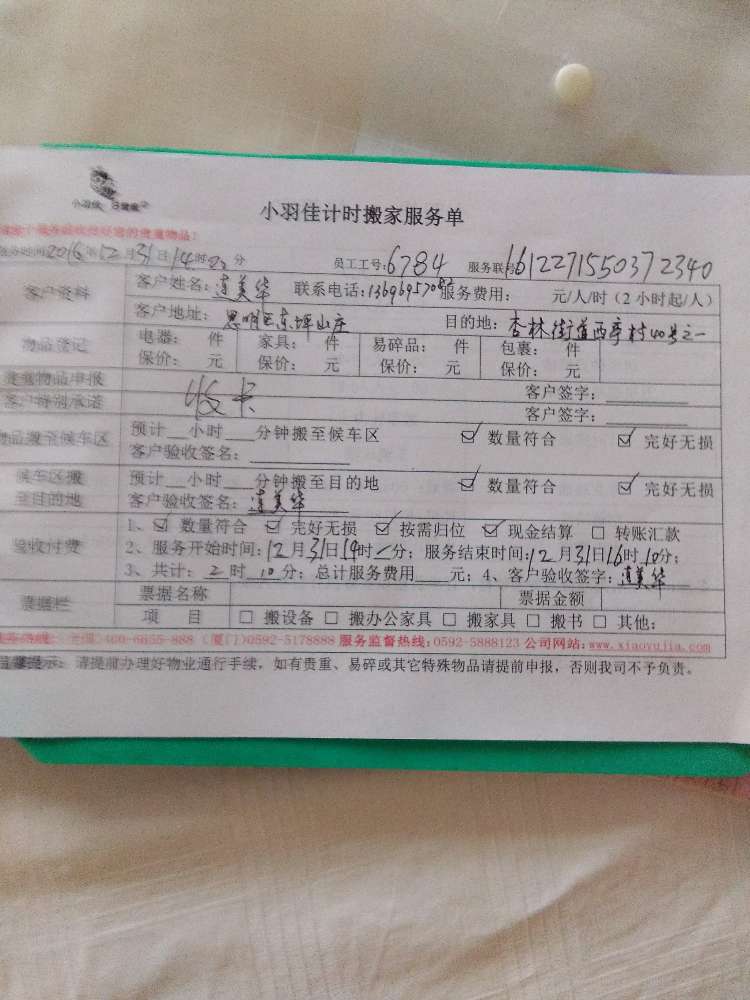 小羽佳 日常家
小羽佳计时搬家服务单
贵重物品!
服务时间2016年12月31日14时 分 员工工号:6784 服务联号1612271550372340
客户资料 客户姓名:连美华 联系电话: 服务费用: 元/人/时(2小时起/人)
客户地址:思明区东坪山庄 目的地:杏林街道西亭村40号之一
物品登记 电器: 件 家具: 件 易碎品: 件 包裹: 件
保价: 元 保价: 元 保价: 元 保价: 元
贵重物品申报 客户签字:
客户特别承诺 收卡 客户签字:
物品搬至候车区 预计__小时___分钟搬至候车区 ☑ 数量符合 ☑ 完好无损
客户验收签名:
候车区搬至目的地 预计__小时___分钟搬至目的地 ☑ 数量符合 ☑ 完好无损
客户验收签名:连美华
验收付费 1、☑ 数量符合 ☑ 完好无损 ☑ 按需归位 ☑ 现金结算 □ 转账汇款
2、服务开始时间:12月31日 时 分;服务结束时间:12月31日16时10分;
3、共计:2时10分;总计服务费用___元;4、客户验收签字:连美华
票据栏 票据名称 票据金额
项 目 □ 搬设备 □ 搬办公家具 □ 搬家具 □ 搬书 □ 其他:
服务热线:全国:400-6655-888 (厦门)0592-5178888 服务监督热线:0592-5888123 公司网站:www.xiaoyujia.com
温馨提示:请提前办理好物业通行手续,如有贵重、易碎或其它特殊物品请提前申报,否则我司不予负责。